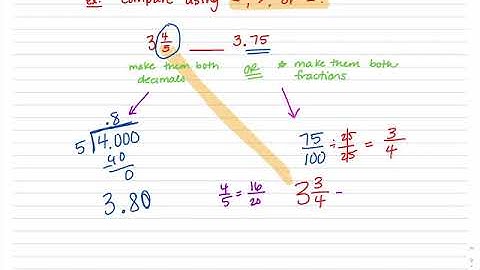 ex: compare using <, >, or =.
3 4/5 ___ 3.75
make them both decimals OR * make them both fractions
.8
5 4.000
40
0
3.80
75/100 ÷ 25/25 = 3/4
4/5 = 16/20
3 3/4 =